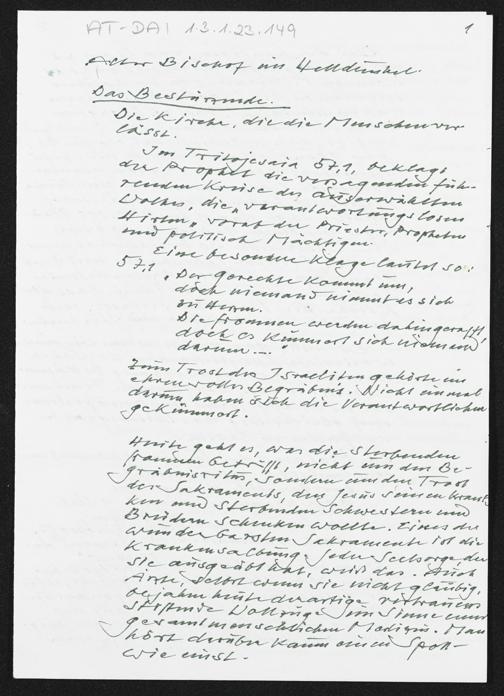 AT-DAI 1.3.1.23.149
1
Alter Bischof im Helldunkel.
Das Bestürzende.
Die Kirche, die die Menschen ver-
lässt.
Im Tritojesaia 57,1, beklagt
der Prophet die versagenden füh-
renden Kreise des auserwählten
Volkes, die „verantwortungslosen
Hirten", vorab der Priester, Propheten
und politisch Mächtigen.
Eine besondere Klage lautet so:
57,1 „Der Gerechte kommt um,
doch niemand nimmt es sich
zu Herzen.
Die Frommen werden dahingerafft,
doch es kümmert sich niemand
darum..."
Zum Trost der Israeliten gehörte ein
ehrenvolles Begräbnis. Nicht einmal
darum haben sich die Verantwortlichen
gekümmert.
Heute geht es, was die sterbenden
frommen betrifft, nicht um den Be-
gräbnisritus, sondern um den Trost
des Sakraments, den Jesus seinen kran-
ken und sterbenden Schwestern und
Brüdern schenken wollte. Eines der
wunderbarsten Sakramente ist die
Krankensalbung. Jeder Seelsorger, der
sie ausgeübt hat, weiss das. Auch
Ärzte, selbst wenn sie nicht gläubig,
bejahen heute derartige vertrauens
stiftende Vollzüge im Sinne einer
gesamtmenschlichen Medizin. Man
hört darüber kaum einen Spott
wie einst.